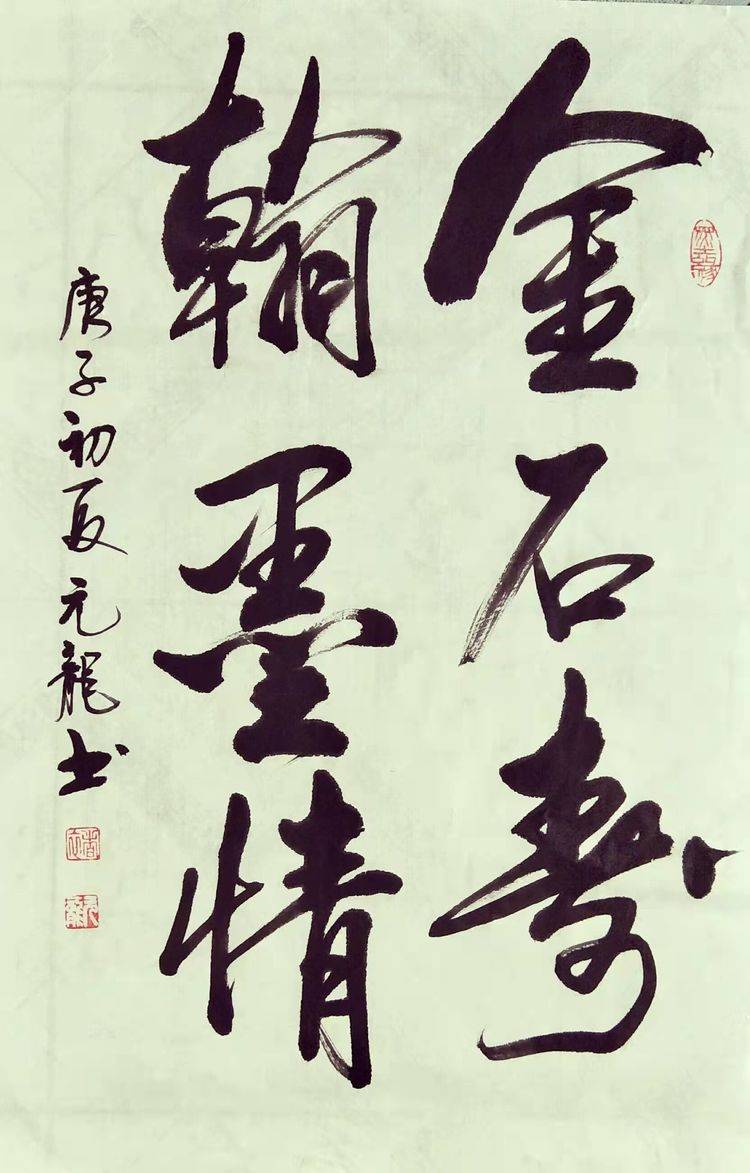 金石壽
翰墨情
庚子初夏元龍书